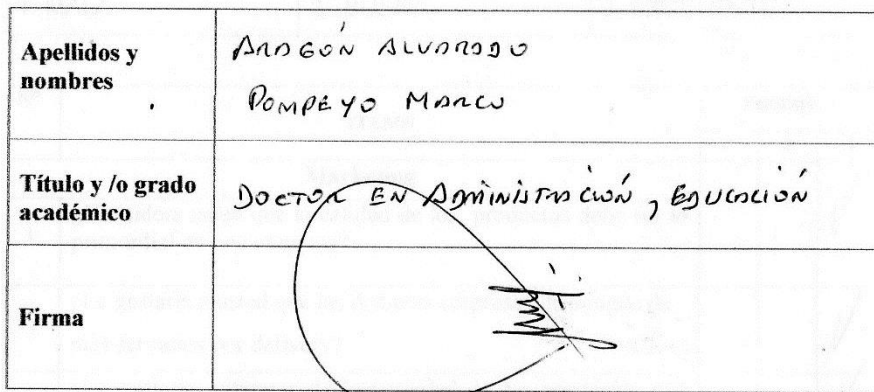 Apellidos y
nombres
ARAGÓN ALVARADO
POMPEYO MARCO
Título y /o grado
académico
DOCTOR EN ADMINISTRACIÓN, EDUCACIÓN
Firma